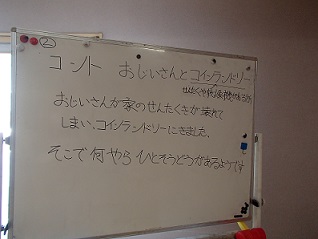 ②
コント おじいさんとコインランドリー
おじいさんが家のせんたくきが壊れて
しまい、コインランドリーにきました。
そこで何やらひとそうどうがあるようです